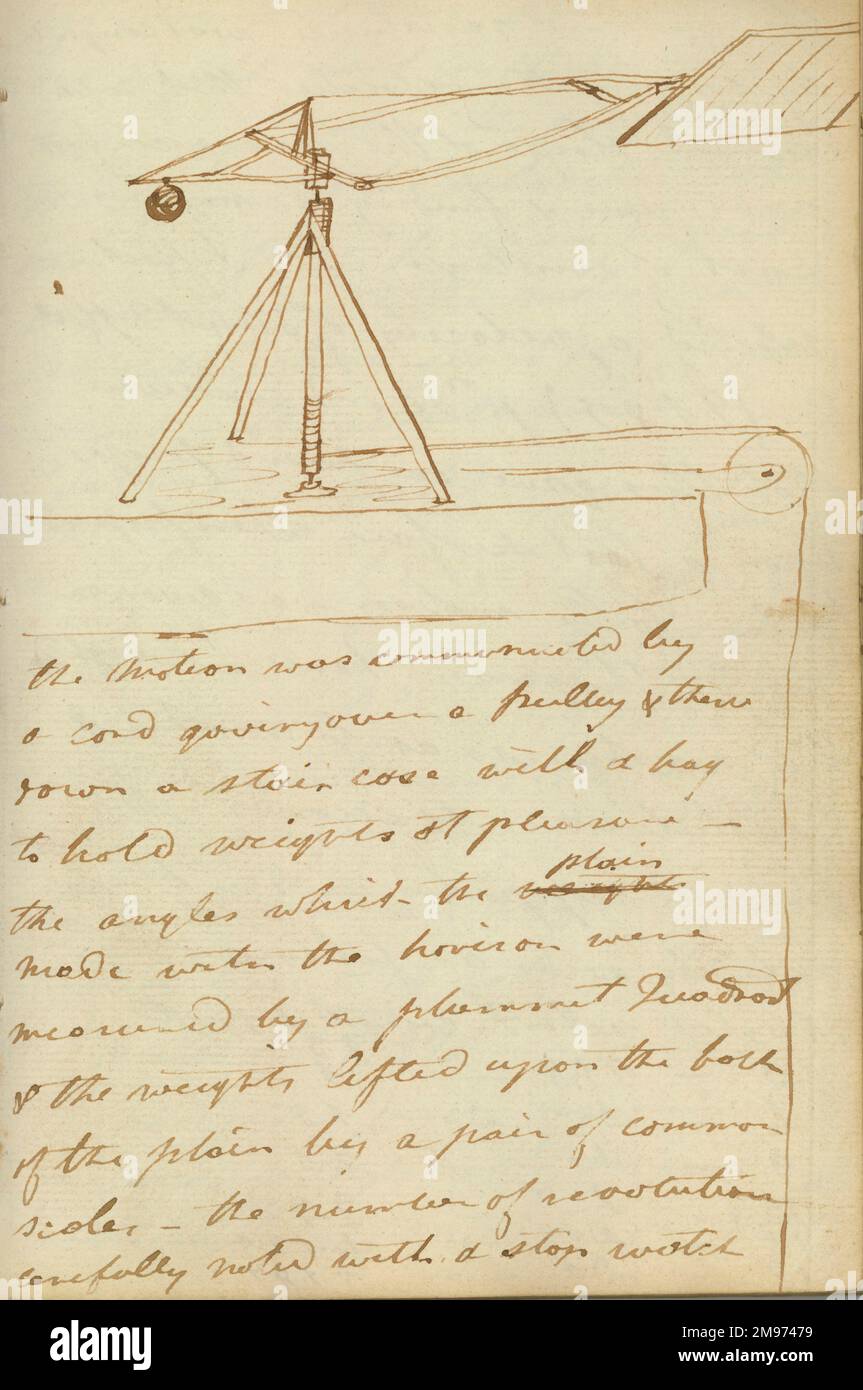 the motion was communicated by
a cord goving over a pulley & then
down a stair case with a bag
to hold weights at pleasure —
plain
the angles which the weights
made with the horison were
measured by a plummet Quadrant
& the weights lifted upon the back
of the plain by a pair of common
scales — the number of revolution
carefully noted with a stop watch
a
alamy
Image ID: 2M97479
www.alamy.com